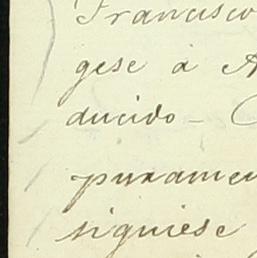 Francisco
gese à A
ducido –
puramen
siguiese